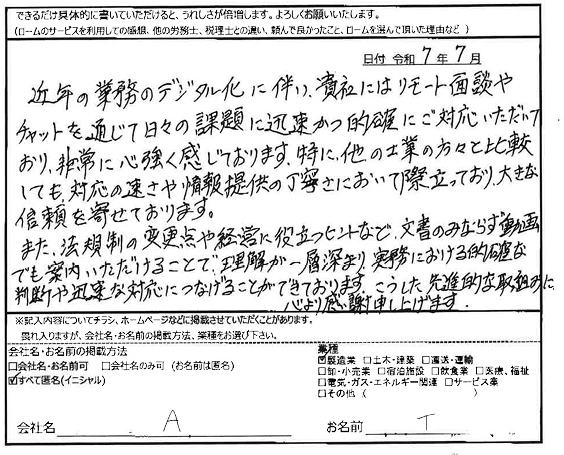 できるだけ具体的に書いていただけると、うれしさが倍増します。よろしくお願いいたします。
(ロームのサービスを利用しての感想、他の労務士、税理士との違い、頼んで良かったこと、ロームを選んで頂いた理由など )
日付 令和 7 年 7 月
近年の業務のデジタル化に伴い、貴社にはリモート面談や
チャットを通じて日々の課題に迅速かつ的確にご対応いただいて
おり、非常に心強く感じております。特に、他の士業の方々と比較
しても対応の速さや情報提供の丁寧さにおいて際立っており、大きな
信頼を寄せております。
また、法規制の変更点や経営に役立つヒントなど、文書のみならず動画
でも案内いただけることで、理解が一層深まり、実務における的確な
判断や迅速な対応につなげることができております。こうした先進的な取組みに
心より感謝申し上げます.
※記入内容についてチラシ、ホームページなどに掲載させていただくことがあります。
畏れ入りますが、会社名・お名前の掲載方法、業種をお選び下さい。
会社名・お名前の掲載方法
□会社名・お名前可 □会社名のみ可 (お名前は匿名)
☑すべて匿名(イニシャル)
業種
☑製造業 □土木・建築 □運送・運輸
□卸・小売業 □宿泊施設 □飲食業 □医療、福祉
□電気・ガス・エネルギー関連 □サービス業
□その他 ( )
会社名 A お名前 T